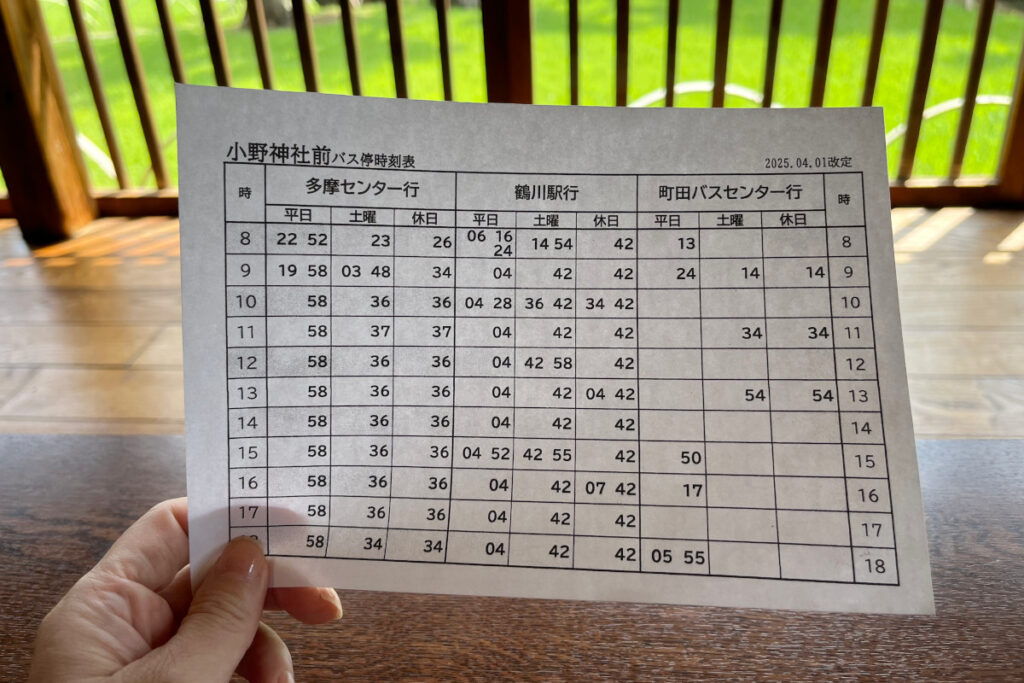 小野神社前バス停時刻表 2025.04.01改定
時 多摩センター行 鶴川駅行 町田バスセンター行 時
平日 土曜 休日 平日 土曜 休日 平日 土曜 休日
8 22 52 23 26 06 16 24 14 54 42 13 8
9 19 58 03 48 34 04 42 42 24 14 14 9
10 58 36 36 04 28 36 42 34 42 10
11 58 37 37 04 42 42 34 34 11
12 58 36 36 04 42 58 42 12
13 58 36 36 04 42 04 42 54 54 13
14 58 36 36 04 42 42 14
15 58 36 36 04 52 42 55 42 50 15
16 58 36 36 04 42 07 42 17 16
17 58 36 36 04 42 42 17
58 34 34 04 42 42 05 55 18